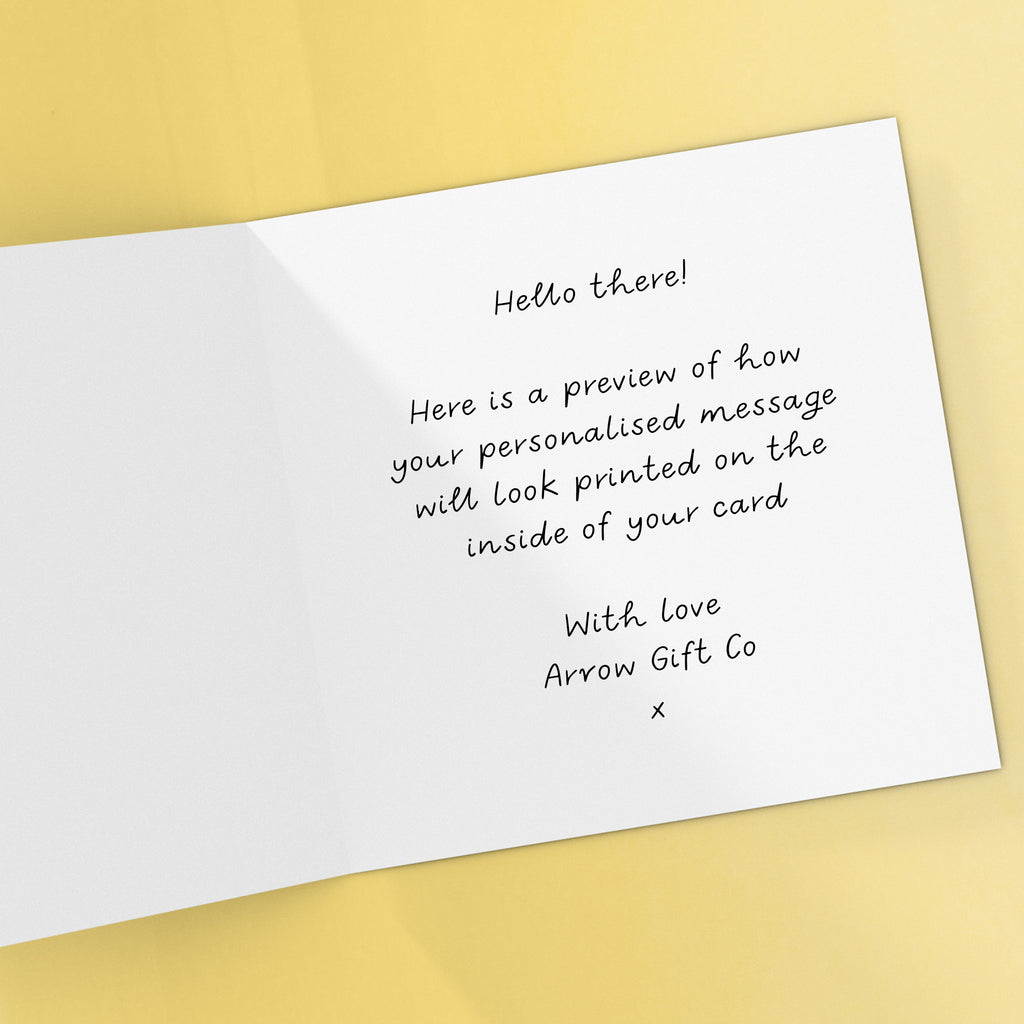 Hello there!
Here is a preview of how
your personalised message
will look printed on the
inside of your card
With love
Arrow Gift Co
x